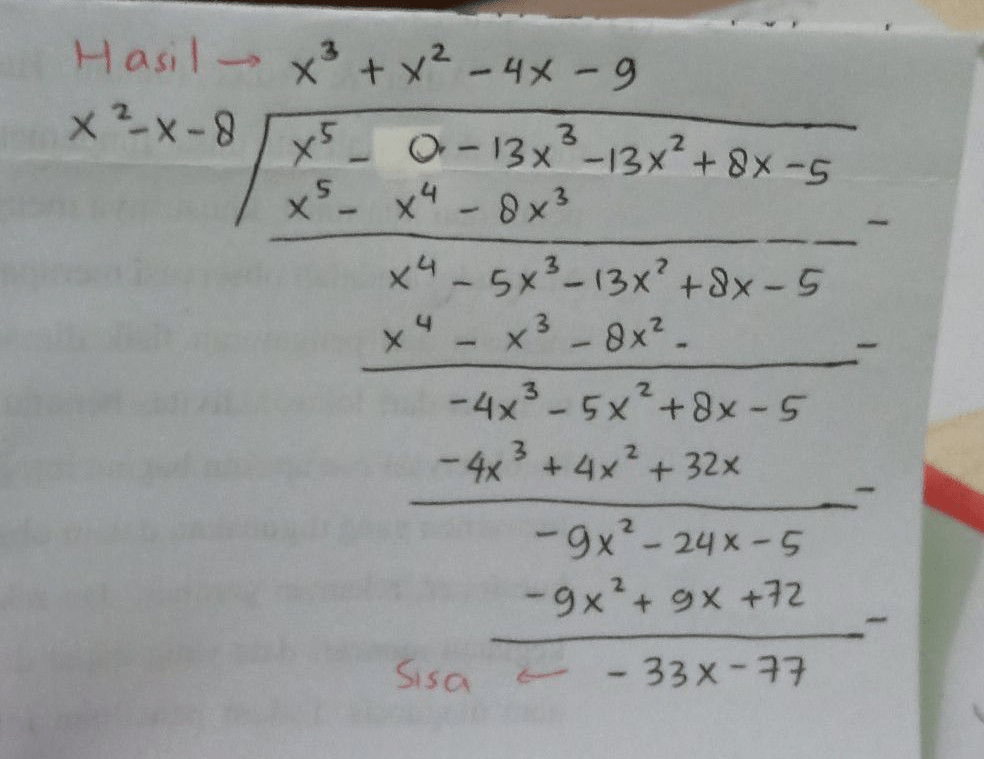 Hasil → x³ + x² - 4x - 9
x² - x - 8 / x⁵ - 0 - 13x³ - 13x² + 8x - 5
x⁵ - x⁴ - 8x³ -
x⁴ - 5x³ - 13x² + 8x - 5
x⁴ - x³ - 8x² - -
-4x³ - 5x² + 8x - 5
-4x³ + 4x² + 32x -
-9x² - 24x - 5
-9x² + 9x + 72 -
Sisa ← - 33x - 77